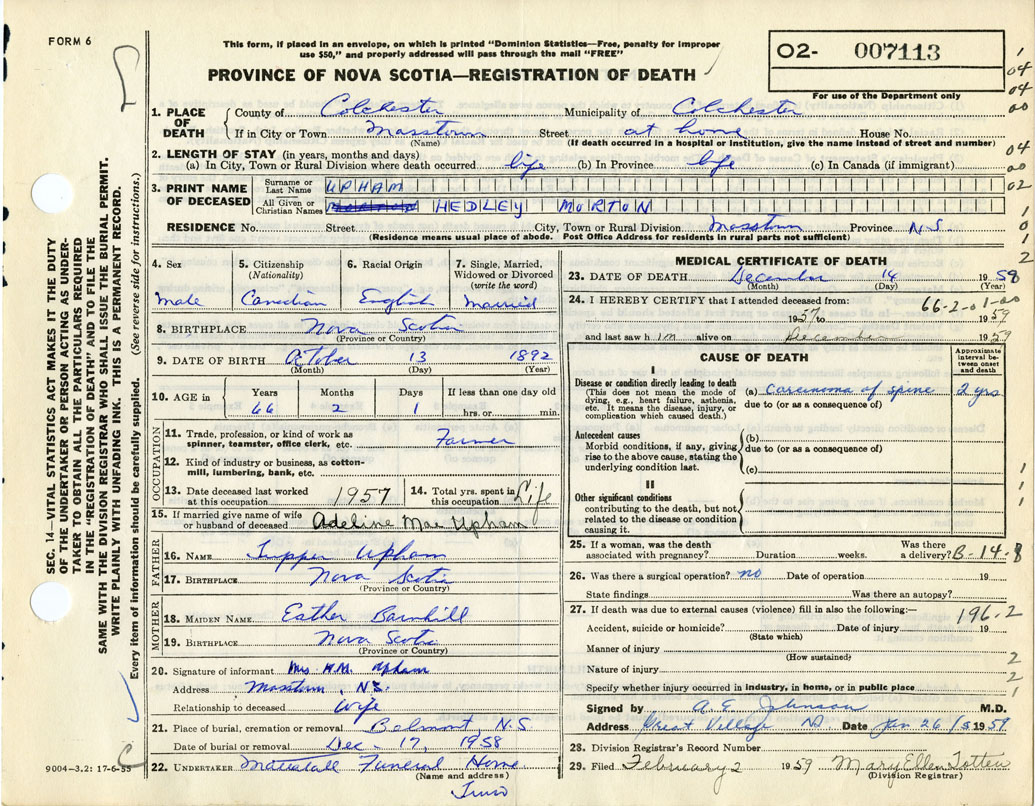 FORM 6
This form, if placed in an envelope, on which is printed "Dominion Statistics—Free, penalty for improper
use $50," and properly addressed will pass through the mail "FREE"
PROVINCE OF NOVA SCOTIA—REGISTRATION OF DEATH
02- 007113
For use of the Department only
1. PLACE OF DEATH
County of Colchester Municipality of Colchester
If in City or Town Masstown Street at home House No.
(Name) (If death occurred in a hospital or institution, give the name instead of street and number)
2. LENGTH OF STAY (in years, months and days)
(a) In City, Town or Rural Division where death occurred life (b) In Province life (c) In Canada (if immigrant)
3. PRINT NAME OF DECEASED
Surname or Last Name UPHAM
All Given or Christian Names HEDLEY MORTON
RESIDENCE No. Street City, Town or Rural Division Masstown Province N.S.
(Residence means usual place of abode. Post Office Address for residents in rural parts not sufficient)
4. Sex male
5. Citizenship (Nationality) Canadian
6. Racial Origin English
7. Single, Married, Widowed or Divorced (write the word) Married
8. BIRTHPLACE Nova Scotia
(Province or Country)
9. DATE OF BIRTH October 13 1892
(Month) (Day) (Year)
10. AGE in Years 66 Months 2 Days 1 If less than one day old hrs. or min.
OCCUPATION
11. Trade, profession, or kind of work as spinner, teamster, office clerk, etc. Farmer
12. Kind of industry or business, as cotton-mill, lumbering, bank, etc.
13. Date deceased last worked at this occupation 1957
14. Total yrs. spent in this occupation Life
15. If married give name of wife or husband of deceased Adeline Mae Upham
FATHER
16. NAME Tupper Upham
17. BIRTHPLACE Nova Scotia
(Province or Country)
MOTHER
18. MAIDEN NAME Esther Barnhill
19. BIRTHPLACE Nova Scotia
(Province or Country)
20. Signature of informant Mrs. H.M. Upham
Address Masstown, N.S.
Relationship to deceased Wife
21. Place of burial, cremation or removal Belmont N.S
Date of burial or removal Dec. 17, 1958
22. UNDERTAKER Mattatall Funeral Home
(Name and address)
Truro
MEDICAL CERTIFICATE OF DEATH
23. DATE OF DEATH December 14 1958
(Month) (Day) (Year)
24. I HEREBY CERTIFY that I attended deceased from: 66-2-01-00
1957 to 1959
and last saw h im alive on December 1959
CAUSE OF DEATH
Approximate interval between onset and death
I
Disease or condition directly leading to death
(This does not mean the mode of dying, e.g., heart failure, asthenia, etc. It means the disease, injury, or complication which caused death.)
(a) Carcinoma of spine 2 yrs
due to (or as a consequence of)
Antecedent causes
Morbid conditions, if any, giving rise to the above cause, stating the underlying condition last.
(b)
due to (or as a consequence of)
(c)
II
Other significant conditions
contributing to the death, but not related to the disease or condition causing it.
25. If a woman, was the death associated with pregnancy? Duration weeks. Was there a delivery? B-14-8
26. Was there a surgical operation? no Date of operation 19
State findings Was there an autopsy?
27. If death was due to external causes (violence) fill in also the following:— 196-2
Accident, suicide or homicide? Date of injury 19
(State which)
Manner of injury
(How sustained)
Nature of injury
Specify whether injury occurred in industry, in home, or in public place
Signed by A E Johnson M.D.
Address Great Village NS Date Jan 26 1959
28. Division Registrar's Record Number
29. Filed February 2 1959 Mary Ellen Totten
(Division Registrar)
9004-3.2: 17-6-55
SEC. 14—VITAL STATISTICS ACT MAKES IT THE DUTY
OF THE UNDERTAKER OR PERSON ACTING AS UNDER-
TAKER TO OBTAIN ALL THE PARTICULARS REQUIRED
IN THE "REGISTRATION OF DEATH" AND TO FILE THE
SAME WITH THE DIVISION REGISTRAR WHO SHALL ISSUE THE BURIAL PERMIT.
WRITE PLAINLY WITH UNFADING INK. THIS IS A PERMANENT RECORD.
Every item of information should be carefully supplied. (See reverse side for instructions.)